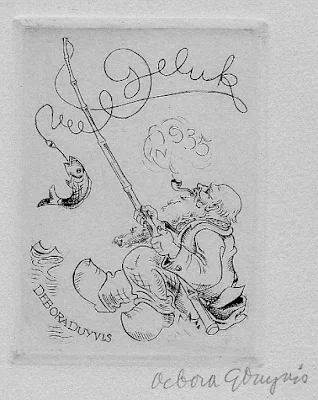 Veel Geluk
in 1935
DEBORA DUYVIS
Debora G Duyvis